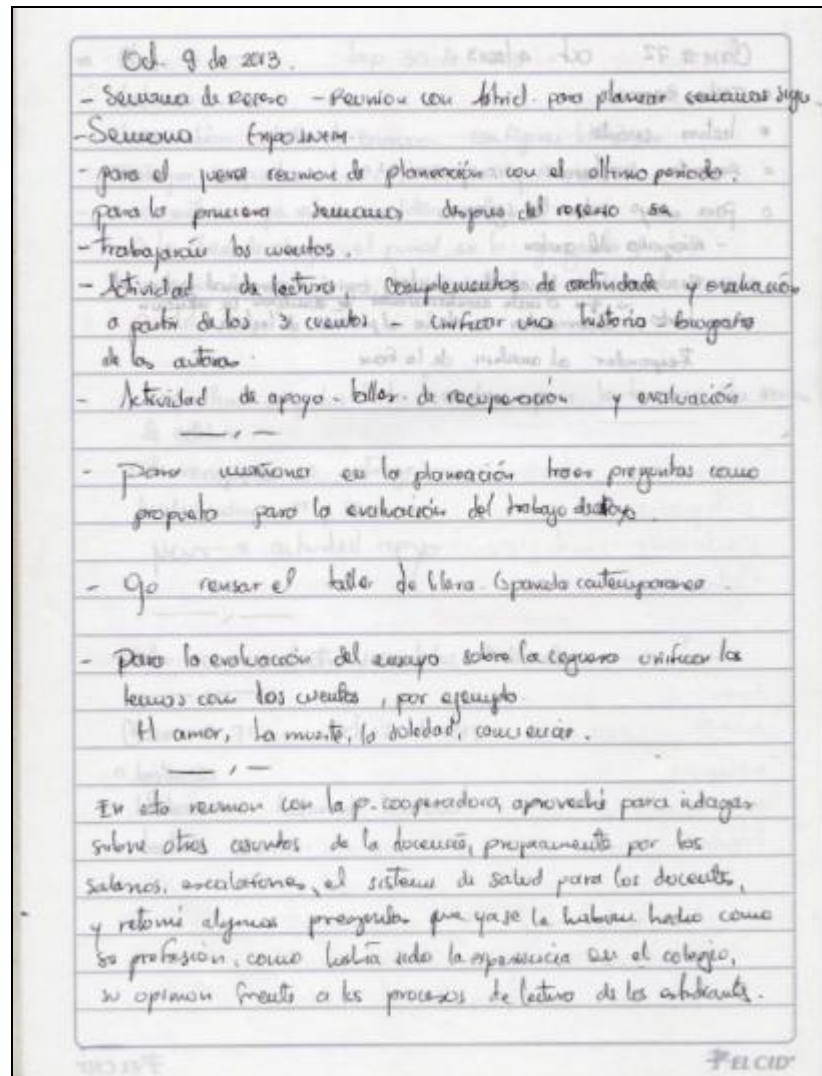 Oct. 9 de 2013.
- Semana de Receso - Reunion con Astrid. para planear semanas sigu
- Semana Expo
- para el jueves reunion de planeación con el ultimo periodo.
para la primera semana despues del reseso se
- trabajarán los cuentos.
- Actividad de lectura complementos de y evaluación
a partir de los 3 cuentos - unificar una historia biografia
de los autores.
- Actividad de apoyo - taller de recuperación y evaluación
— , —
- Para mañana en la planeación traer preguntas como
propuesta para la evaluación del trabajo
- Yo revisar el taller de Española contemporanea.
- Para la evaluación del ensayo sobre la ceguera unificar los
temas con los cuentos, por ejemplo
El amor, La muerte, la soledad,
— , —
En esta reunion con la p. cooperadora, aproveché para idagar
sobre otros asuntos de la docencia, propiamente por los
salarios, escalafones, el sistema de salud para los docentes,
y retomé algunas preguntas que ya se le habian hecho como
su profesión, como había sido la experiencia en el colegio,
su opinion frente a los procesos de lectura de los estudiantes.
EL CID